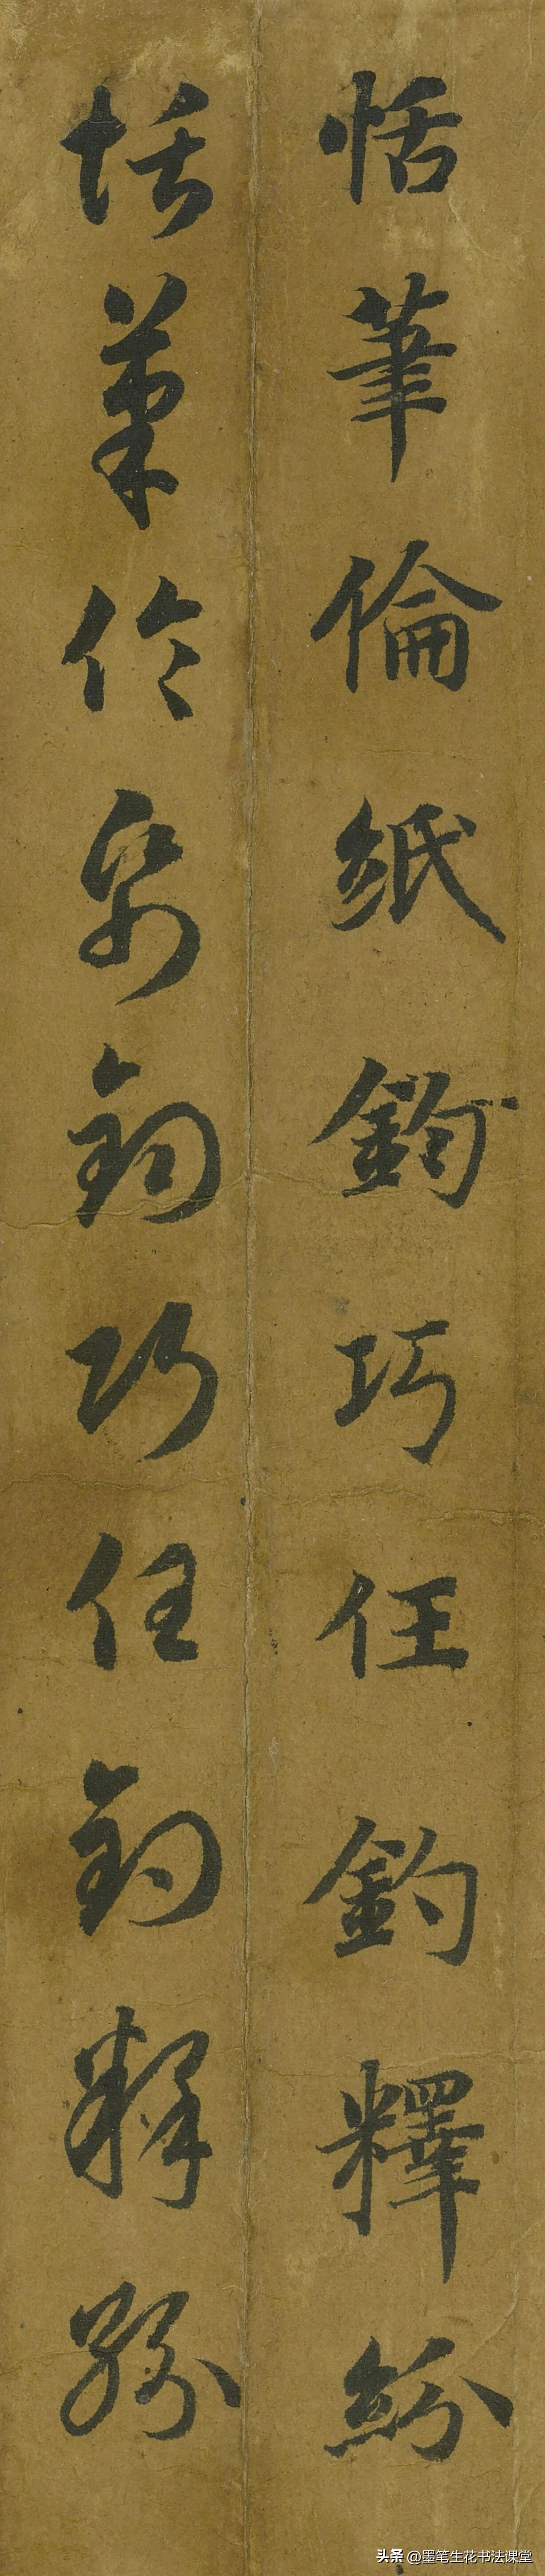 恬筆倫紙鈞巧任釣釋紛
恬筆倫紙鈞巧任釣釋紛
头条 @墨笔生花书法课堂